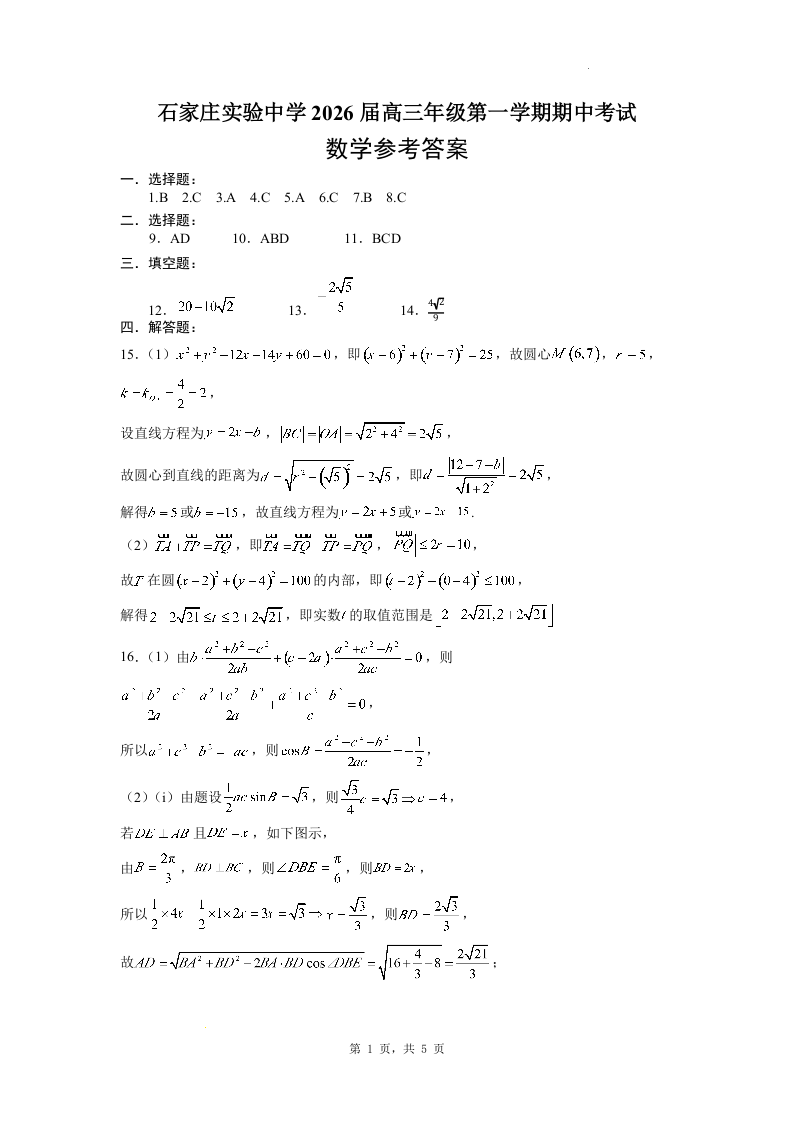 石家庄实验中学 2026 届高三年级第一学期期中考试
数学参考答案
一．选择题：
1.B 2.C 3.A 4.C 5.A 6.C 7.B 8.C
二．选择题：
9．AD 10．ABD 11．BCD
三．填空题：
12．20−10√2 13．−2√5/5 14．4√2/9
四．解答题：
15．（1）x²+y²−12x−14y+60=0，即(x−6)²+(y−7)²=25，故圆心M(6,7)，r=5，
k=k =4/2=2，
设直线方程为y=2x−b，|BC|=|OA|=√(2²+4²)=2√5，
故圆心到直线的距离为d=√(r²−(√5)²)=2√5，即d=|12−7−b|/√(1+2²)=2√5，
解得b=5或b=−15，故直线方程为y=2x+5或y=2x 15．
（2）TA+TP=TQ，即TA=TQ TP=PQ，|PQ|≤2r=10，
故T在圆(x−2)²+(y−4)²=100的内部，即(t−2)²−(0−4)²≤100，
解得2 2√21≤t≤2+2√21，即实数t的取值范围是[2 2√21,2+2√21]
16．（1）由b·(a²+b²−c²)/2ab+(c−2a)·(a²+c²−b²)/2ac=0，则
(a²+b² c²)/2a (a²+c² b²)/2a+(a²+c² b²)/c=0，
所以a²+c² b²= ac，则cosB=(a²−c²−b²)/2ac=−1/2，
（2）（i）由题设1/2 ac sinB=√3，则√3/4 c=√3⇒c=4，
若DE⊥AB且DE=x，如下图示，
由B=2π/3，BD⊥BC，则∠DBE=π/6，则BD=2x，
所以1/2×4x 1/2×1×2x=3x=√3⇒x=√3/3，则BD=2√3/3，
故AD=√(BA²+BD²−2BA·BD cos∠DBE)=√(16+4/3−8)=2√21/3；
第 1 页，共 5 页